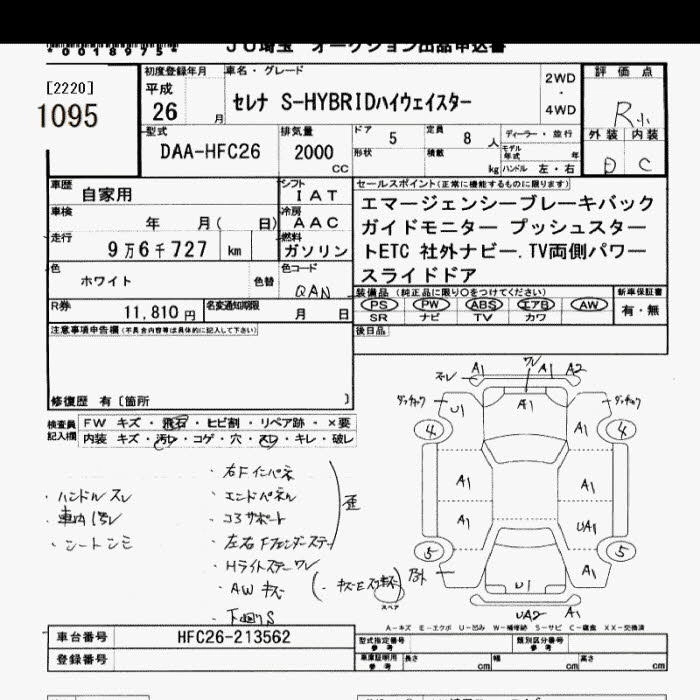 *0018975*
JU埼玉 オークション出品申込書
[2220]
1095
初度登録年月
平成
26 月
車名・グレード
セレナ S-HYBRIDハイウェイスター
2WD
・
4WD
評価点
R
外装 内装
D C
型式
DAA-HFC26
排気量
2000
CC
ドア 5
定員 8 人
形状
積載 kg
ディーラー・並行
モデル年式 年
ハンドル 左・右
車歴
自家用
シフト
IAT
車検
年 月( 日)
冷房
AAC
走行
9万6千727 km
燃料
ガソリン
色
ホワイト
色替
色コード
QAN
R券
11,810 円
名変通知期限
月 日
セールスポイント(正常に機能するものに限ります)
エマージェンシーブレーキバック
ガイドモニター プッシュスター
トETC 社外ナビー.TV両側パワー
スライドドア
装備品 (純正品に限り○をつけてください)
PS PW ABS エアB AW
SR ナビ TV カワ
新車保証書
有・無
後日品
注意事項申告欄(不具合内容等は具体的に記入して下さい)
修復歴 有〔箇所 〕
検査員記入欄
FW キズ・飛石・ヒビ割・リペア跡・×要
内装 キズ・汚レ・コゲ・穴・スレ・キレ・破レ
・ハンドルスレ
・車内汚レ
・シートシミ
・右Fインパネ
・エンドパネル
・コアサポート
・左右Fフェンダーステー
歪
・Hライトステーワレ
・AWキズ
・下回りS
スペア
スレ A1 ワレ A1 A2
U1 A1 A1
4 4
A1 A1
A1 UA1
5 5
A1
U1
UA2 A1
A-キズ E-エクボ U-凹み W-補修跡 S-サビ C-腐食 XX-交換済
車台番号
HFC26-213562
登録番号
型式指定番号 参考
類別区分番号 参考
車庫証明用 参考
長さ cm 幅 cm 高さ cm